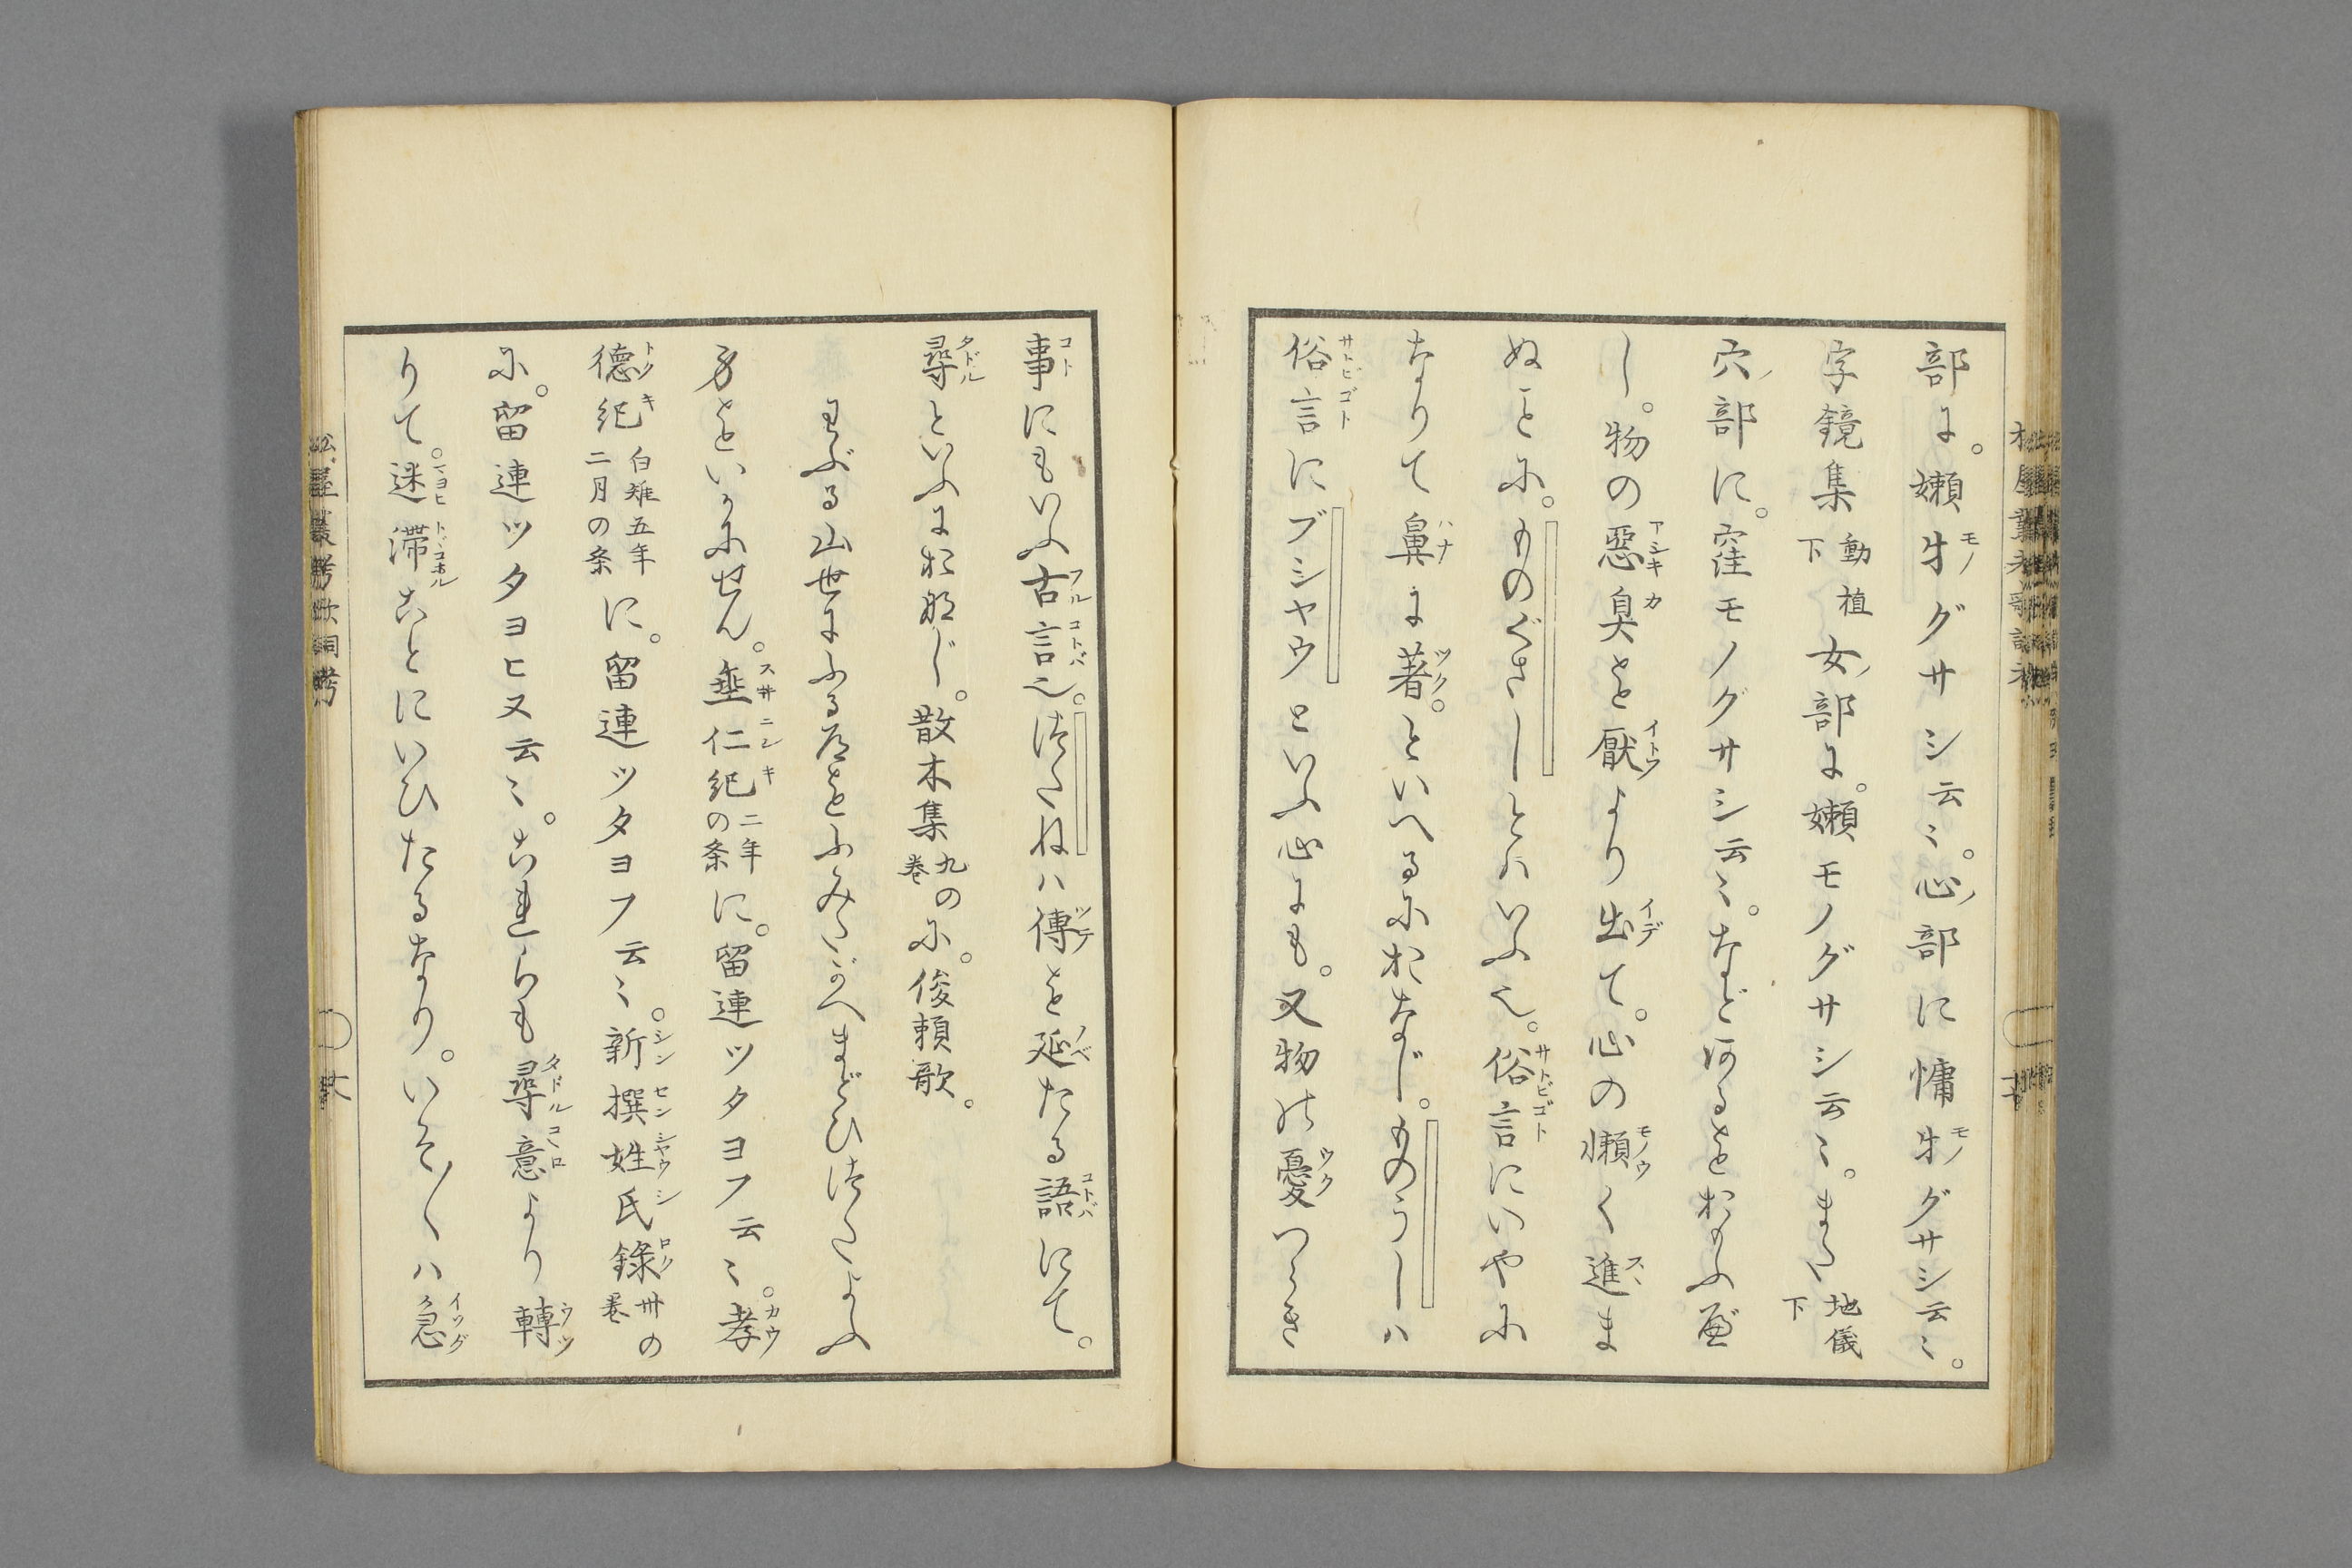 部に。嬾牛モノグサシ云〻。心ノ部に慵牛モノグサシ云〻。
字鏡集動植下女ノ部に。嬾モノグサシ云〻。また地儀下
穴ノ部に。窪モノノグサシ云〻。など有るをおもふ
し。物の惡臭を厭より出て。心の懶く進ま
ぬことに。ものぐさしとハいふ也。俗言にいやに
なりて鼻に著。といへるにおなじ。ものうしハ
俗言にブシヤウといふ心にも。又物の憂つらき
事にもいふ古言也。つたねハ傳を延たる語にて。
尋といふにおなじ。散木集九の巻に。俊頼歌。
まぶる山世にふる道をふみたがへまどひつたよふ
身をいかにせん。垂仁紀二年の条に。留連ツタヨフ云〻。孝
德紀白雉五年二月の条に。留連ツタヨフ云〻。新撰姓氏錄卅の巻
に。留連ツタヨヒ又云〻。これらも尋意より轉
りて。迷滞ことにいひたるなり。いそ〱ハ急